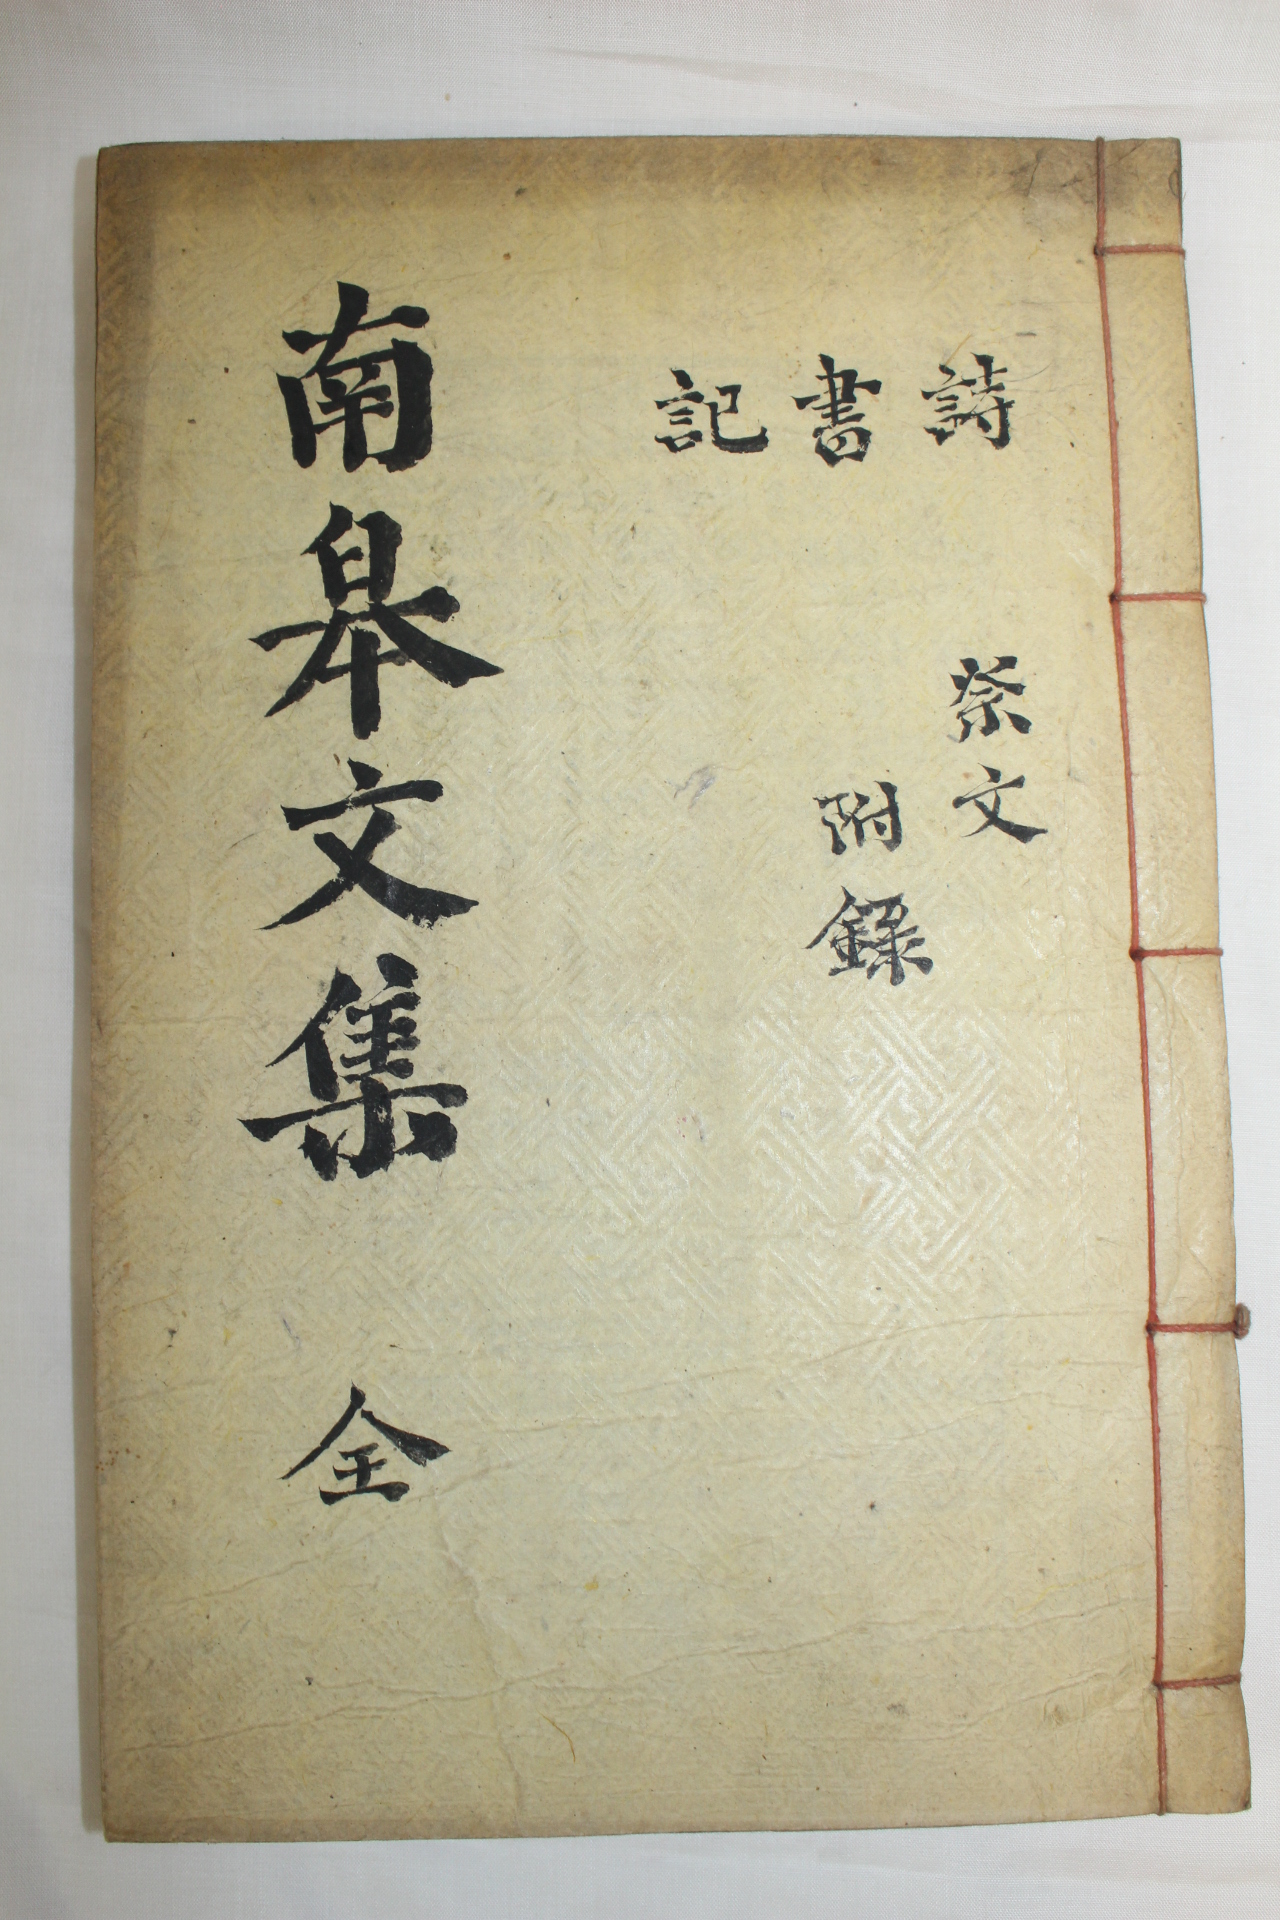 詩
書
記
祭文
附錄
南皐文集 全